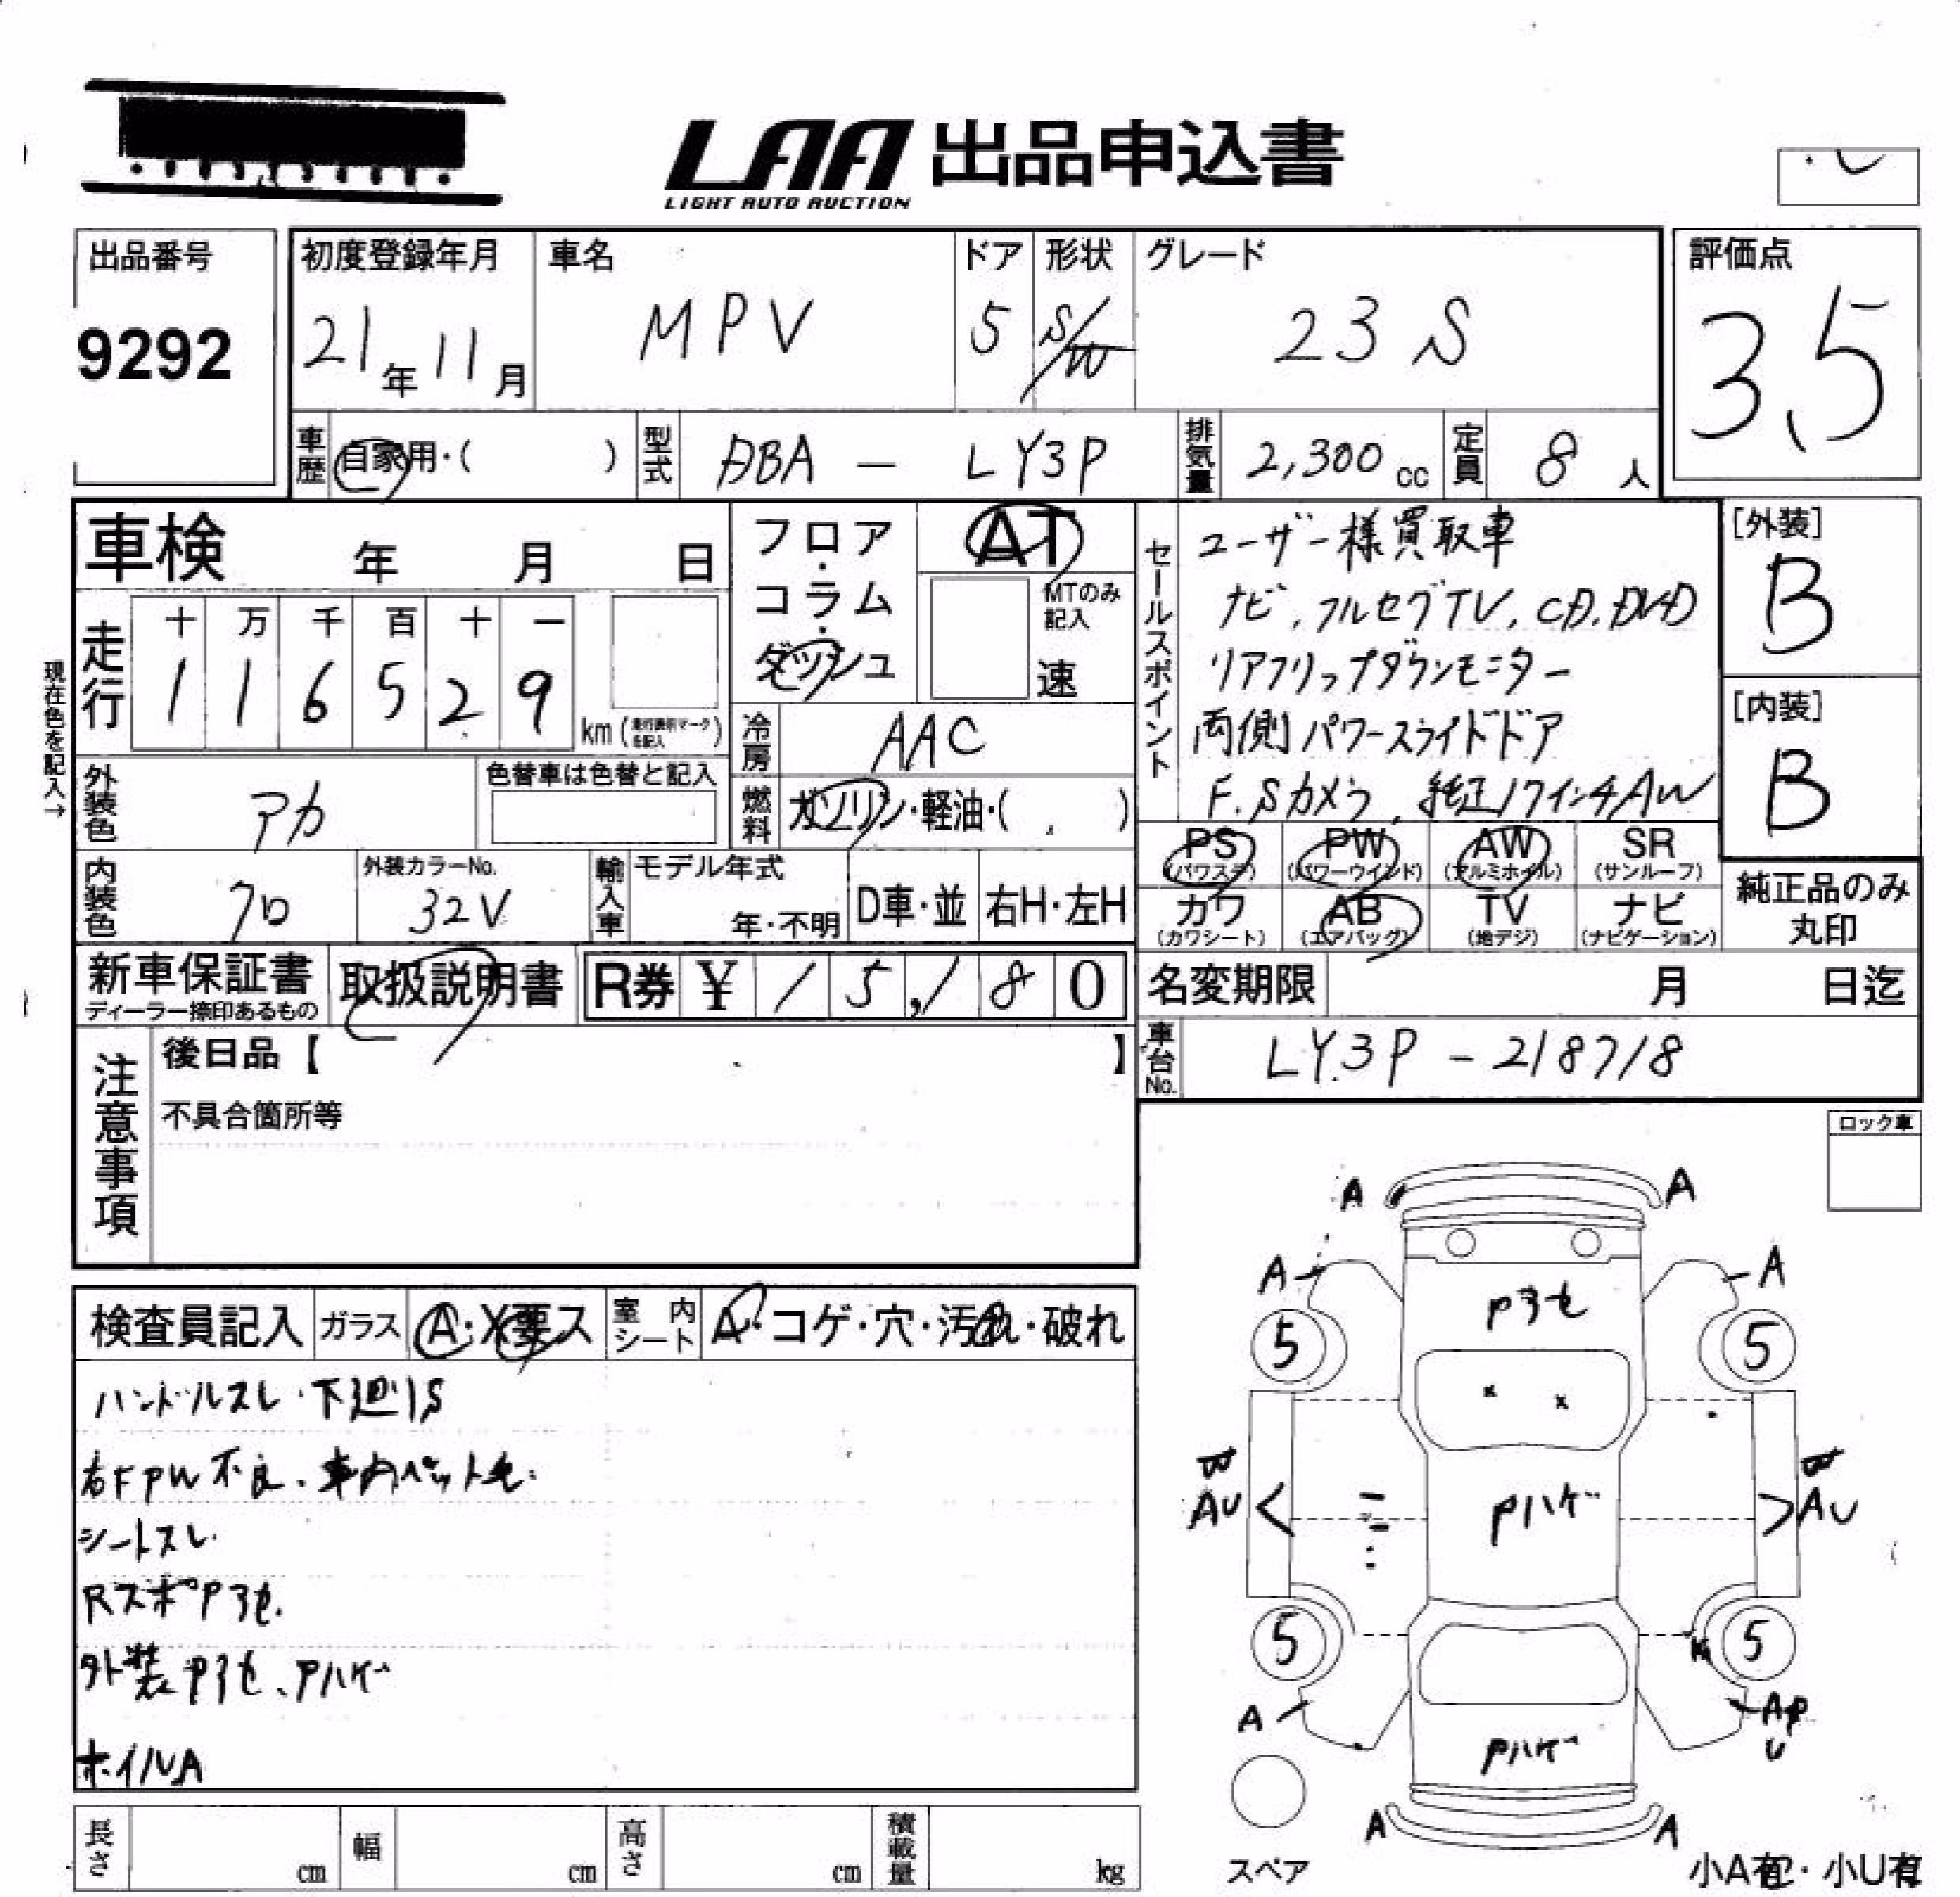 LAA 出品申込書
LIGHT AUTO AUCTION
出品番号
9292
初度登録年月
21年11月
車名
MPV
ドア
5
形状
S/W
グレード
23S
評価点
3.5
車歴
自家用・( )
型式
DBA - LY3P
排気量
2,300cc
定員
8人
車検 年 月 日
フロア・
コラム・
ダッシュ
AT
MTのみ
記入
速
現在色を記入→
走行
十 万 千 百 十 一
1 1 6 5 2 9
km(走行表示マークを記入)
冷房
AAC
外装色
アカ
色替車は色替と記入
燃料
ガソリン・軽油・( )
内装色
クロ
外装カラーNo.
32V
輸入車
モデル年式
年・不明
D車・並
右H・左H
セールスポイント
ユーザー様買取車
ナビ,フルセグTV,CD,DVD
リアフリップダウンモニター
両側パワースライドドア
F.Sカメラ,純正17インチAW
[外装]
B
[内装]
B
PS
(パワステ)
PW
(パワーウインド)
AW
(アルミホイル)
SR
(サンルーフ)
カワ
(カワシート)
AB
(エアバッグ)
TV
(地デジ)
ナビ
(ナビゲーション)
純正品のみ
丸印
新車保証書
ディーラー捺印あるもの
取扱説明書
R券 ¥ 15,180
名変期限 月 日迄
車台No.
LY3P - 218718
注意事項
後日品【 】
不具合箇所等
ロック車
検査員記入
ガラス
A・X要ス
室内シート
A・コゲ・穴・汚れ・破れ
ハンドルスレ・下廻りS
右FPW不良、車内ペット毛.
シートスレ
RスポP3セ.
外装P3セ、Pハゲ
ホイルA
A A
A A
P3セ
5 5
x x
AU AU
Pハゲ
5 5
A AP
U
Pハゲ
A A
スペア
小A有・小U有
長さ cm
幅 cm
高さ cm
積載量 kg